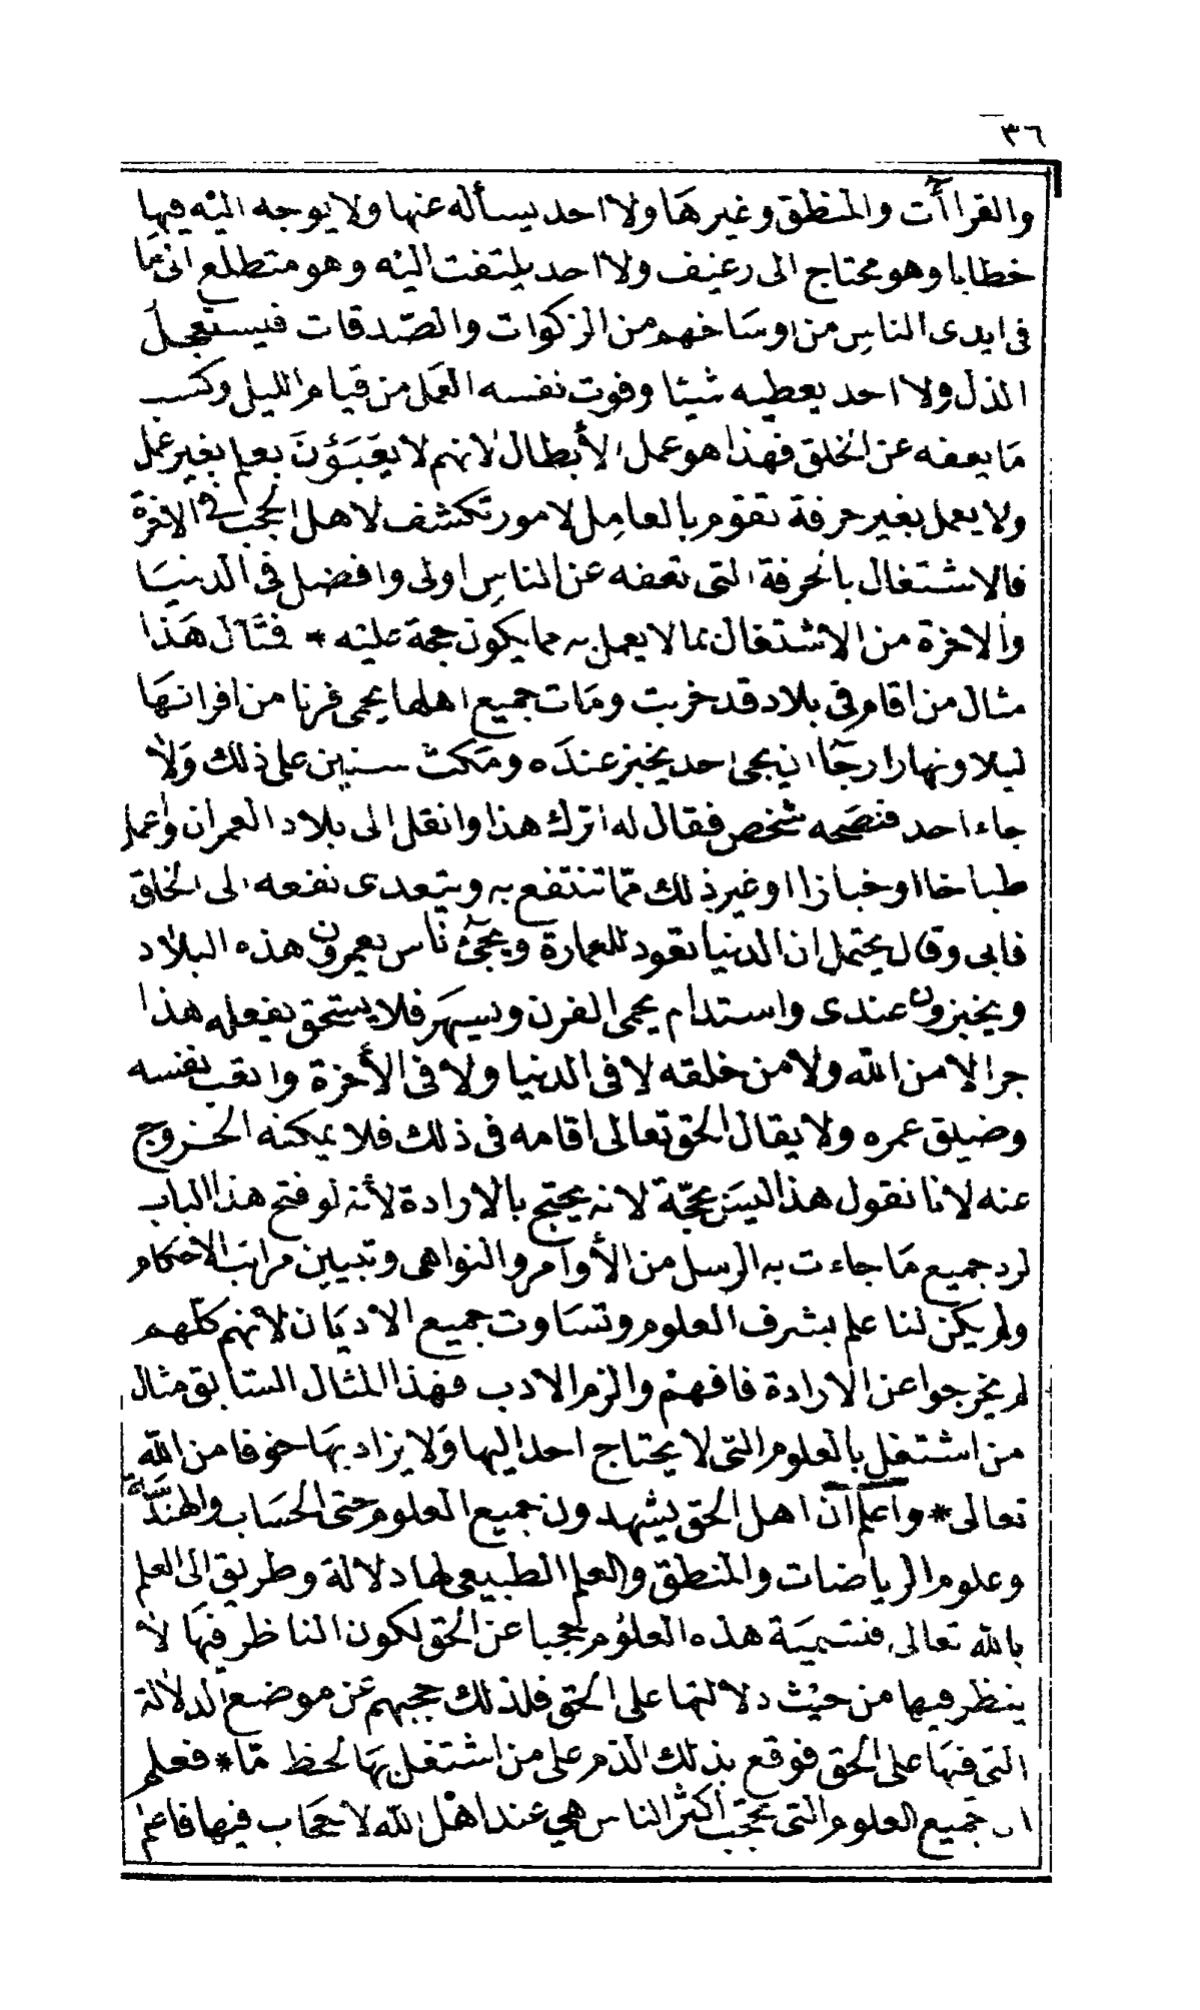 ٣٦
والقراآت والمنطق وغيرها ولا احد يسأله عنها ولا يوجه اليه فيها
خطابا وهو محتاج الى رغيف ولا احد يلتفت اليه وهو متطلع الى ما
فى ايدى الناس من اوساخهم من الزكوات والصدقات فيستعجل
الذل ولا احد يعطيه شيئا وفوت نفسه العمل من قيام الليل وكسب
ما يعفه عن الخلق فهذا هو عمل الأبطال لانهم لا يَعْبَؤُنَ بعلم بغير عمل
ولا يعمل بغير حرفة تقوم بالعامل لامور تكشف لاهل الحجب فى الاخرة
فالاشتغال بالحرفة التى تعفه عن الناس اولى وافضل فى الدنيا
والاخرة من الاشتغال بما لا يعمل به مما يكون حجة عليه * فمثال هذا
مثال من اقام فى بلاد قد خربت ومات جميع اهلها يحمى فرنا من افرانها
ليلا ونهارا رجاء ان يجئ احد يخبز عنده ومكث سنين على ذلك ولا
جاء احد فنصحه شخص فقال له اترك هذا وانقل الى بلاد العمران واعمل
طباخا او خبازا او غير ذلك مما تنتفع به ويتعدى نفعه الى الخلق
فابى وقال يحتمل ان الدنيا تعود للعمارة ويجئ ناس يعمرون هذه البلاد
ويخبزون عندى واستدام يحمى الفرن ويسهر فلا يستحق بفعله هذا
جرا لا من الله ولا من خلقه لا فى الدنيا ولا فى الأخرة واتعب نفسه
وضيق عمره ولا يقال الحق تعالى اقامه فى ذلك فلا يمكنه الخروج
عنه لانا نقول هذا ليس بحجة لانه يحتج بالارادة لأنه لو فتح هذا الباب
لرد جميع ما جاءت به الرسل من الأوامر والنواهى وتبيين مراتب الاحكام
ولم يكن لنا علم بشرف العلوم وتساوت جميع الاديان لانهم كلهم
لم يخرجوا عن الارادة فافهم والزم الادب فهذا المثال السابق مثال
من اشتغل بالعلوم التى لا يحتاج احد اليها ولا يزاد بها خوفا من الله
تعالى * واعلم ان اهل الحق يشهدون جميع العلوم حتى الحساب والهندسة
وعلوم الرياضات والمنطق والعلم الطبيعى لها دلالة وطريق الى العلم
بالله تعالى فتسمية هذه العلوم حجبا عن الحق لكون الناظر فيها لا
ينظر فيها من حيث دلالتها على الحق فلذلك حجبهم عن موضع الدلالة
التى فيها على الحق فوقع بذلك الذم على من اشتغل بها لحظ ما * فعلم
ان جميع العلوم التى تحجب اكثر الناس هي عند اهل الله لا حجاب فيها فاعلم